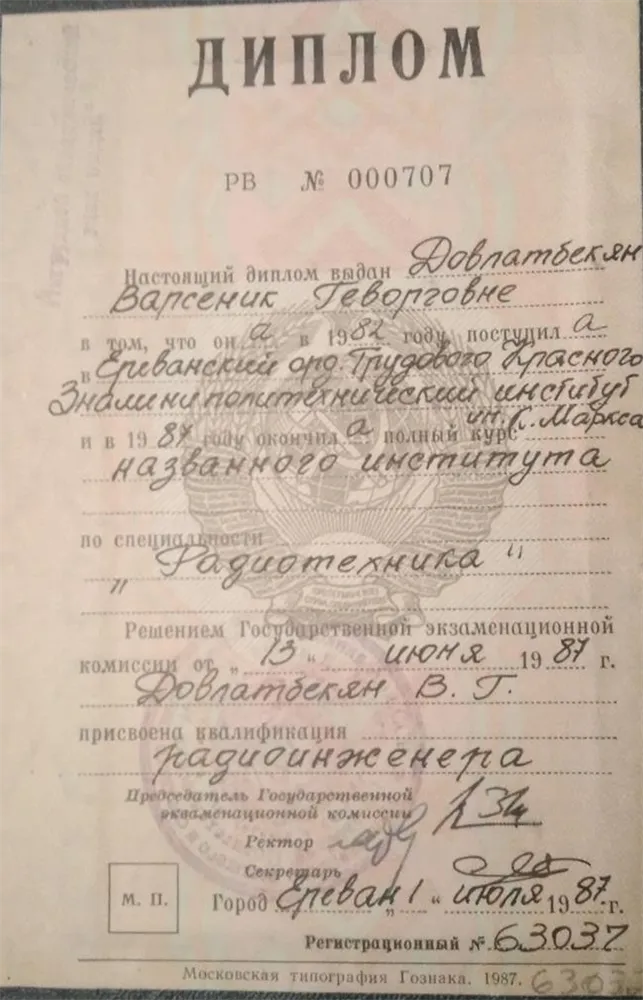 ДИПЛОМ
РВ № 000707
Настоящий диплом выдан Довлатбекян
Варсеник Геворговне
в том, что он а в 1982 году поступил а
в Ереванский орд. Трудового Красного
Знамени политехнический институт
им. К. Маркса
и в 1987 году окончил а полный курс
названного института
по специальности
„Радиотехника“
Решением Государственной экзаменационной
комиссии от „13“ июня 1987 г.
Довлатбекян В. Г.
присвоена квалификация
радиоинженера
Председатель Государственной
экзаменационной комиссии
Ректор
Секретарь
М. П.
Город Ереван „1“ июля 1987 г.
Регистрационный № 63037
Московская типография Гознака. 1987.